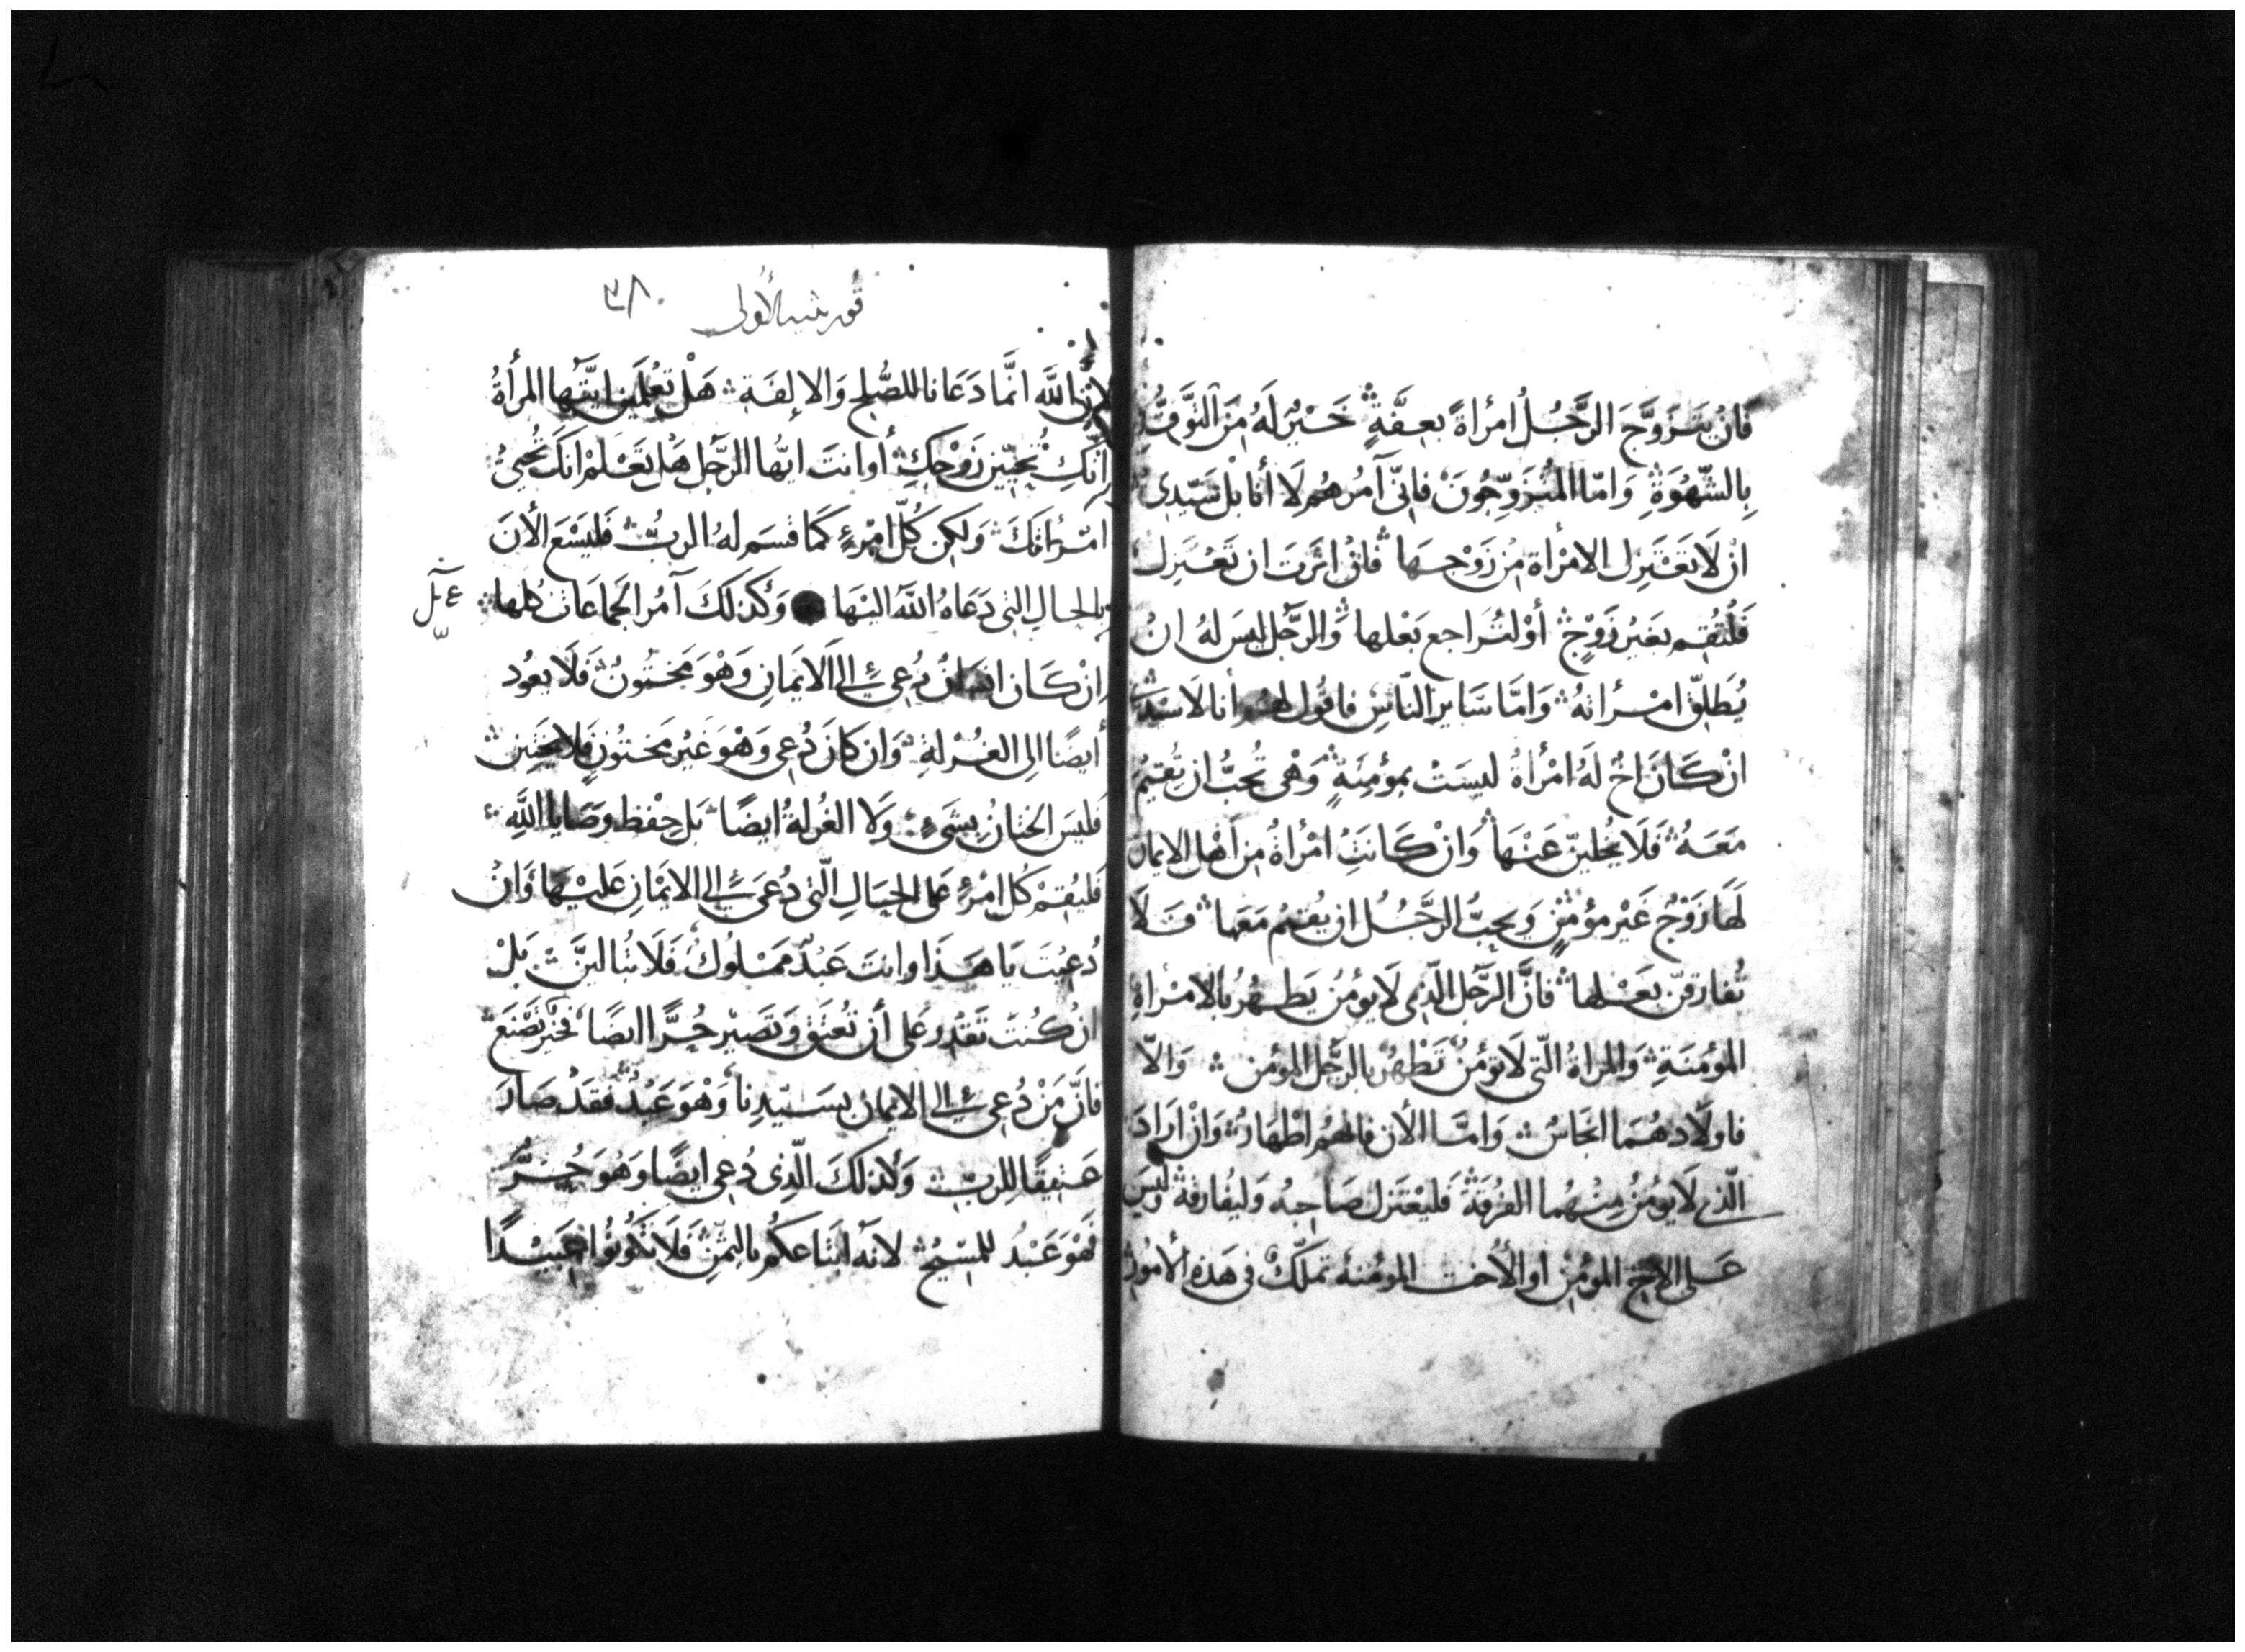 فَانْ يَتَزَوَّجَ الرَّجُلُ امرُأةً بعِفَّةٍ خَيْرٌ لَهُ مِنَ التَّوَقُّدِ
بِالشَّهْوَةِ وَامّا المُتزَوِّجُونَ فانّى آمُرُهُم لَا أنا بل سَيّدِى
انْ لَا تَعْتَزِل الامْرأة مِنْ زَوْجِهَا فانْ اثَرَت ان تَعْتَزِلَ
فَلْتُقِم بغَيْر زَوْجٍ أوْ لتُرَاجع بَعْلها وَالرّجُل ليسَ لهُ انْ
يُطَلِّق امْرأتهُ وَامَّا سَاير النّاسِ فاقُول لهُم أنا لَا سَيّدِى
انْ كَانَ اخٌ لَهُ امْرأةٌ ليسَتْ بمؤمِنَةٍ وَهْى تُحبُّ ان تُقيمَ
مَعَهُ فَلَا يُخلينّ عَنْهَا وَانْ كَانَتِ امْرُأةٌ مِن اهْل الايمان
لَهَا زَوْجٌ غَيْر مؤمنٍ وَيحبُّ الرَّجُلُ ان يُقيمُ مَعَها فَلَا
تُفارقنّ بَعْلها فانَّ الرّجُل الّذِى لَا يؤمنُ يَطهُر بالامْرأةِ
المؤمنَةِ وَالمراةُ الّتى لَا تؤمنُ تَطْهُر بالرّجُل المؤمن وَالّا
فاولَادهُمَا انجَاسٌ وَامَّا الأن فانهُم اطْهَارٌ وَانْ ارَادَ
الّذى لَا يؤمنُ مِنْهُما الفُرْقَةَ فَليَعْتزل صَاحِبهُ وَليُفارقهُ وَليسَ
عَلى الاخِ المؤمِنِ او الأخت المؤمنهُ تملّكٌ فى هَذهِ الأمُورِ
قورنثيه الأولى ٣٨
لانّ اللَّه انمَّا دَعَانا للصُّلحِ وَالالِفَة هَلْ تعْلَمين ايّتُها المرأةُ
انّكِ تُحيّين زَوْجكِ أو انتَ ايّها الرّجُل هَل تَعْلمْ انّكَ تُحيىُ
امْرُأتَكَ وَلَكِن كُلّ امْرءٍ كَمَا قسَم لهُ الربُّ فَليَسْعَ الأنَ
بالحالِ التى دَعَاهُ اللَّه اليْهَا وَكَذلكَ آمُر الجَمَاعَات كُلها
انْ كَان انسَانٌ دُعِى الى الَايمَانِ وَهْوَ مَختُونٌ فَلَا يعُود
أيضًا الى الغُرْلةِ وَان كانَ دُعِى وَهْوَ غَيْر مَختونٍ فلا يختِتن
فَليسَ الختانُ بشَىءٍ وَلَا الغُرلةُ ايضًا بَل حِفْظ وصَايا اللَّهِ
فَليُقِمْ كُل امْرءٍ عَلى الحَالِ الّتى دُعىَ الى الايْمَانِ عَليْهَا وَانْ
دُعِيْتَ يَا هَذَا وانتَ عَبْدٌ مَمْلُوكٌ فَلَا تُباليَنَّ بَلْ
انْ كُنتَ تَقْدِر عَلى أن تُعْتَق وَتَصيْر حُرًّا ايضًا فخيْر تصْنَع
فانَّ مَنْ دُعِى الى الايمان بسَيّدِنا وَهْوَ عَبْدٌ فَقَدْ صَارَ
عَتيقًا لِلربّ وَكذلكَ الّذِى دُعِى ايضًا وَهُوَ حُرٌّ
فهْوَ عَبْدُ للمسْيح لانّهُ ابْتَاعكُم بالثمَنِ فَلَا تكُونُوا عَبيْدًا